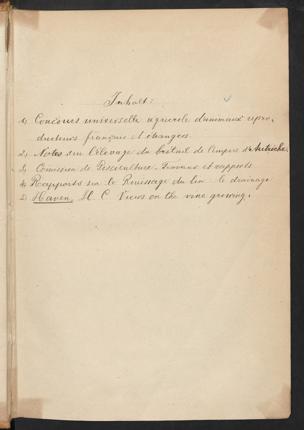 Inhalt:
1) Concours universelle agricole d'animaux repro-
ducteurs français et étrangers.
2) Notes sur l'élevage du bétail de l'empire d'Autriche.
3) Comission de Pisciculture. Travaux et rapports
4) Rapports sur le Rouissage du lin le drainage
5) Haven, M. C. Views on the vine growing.